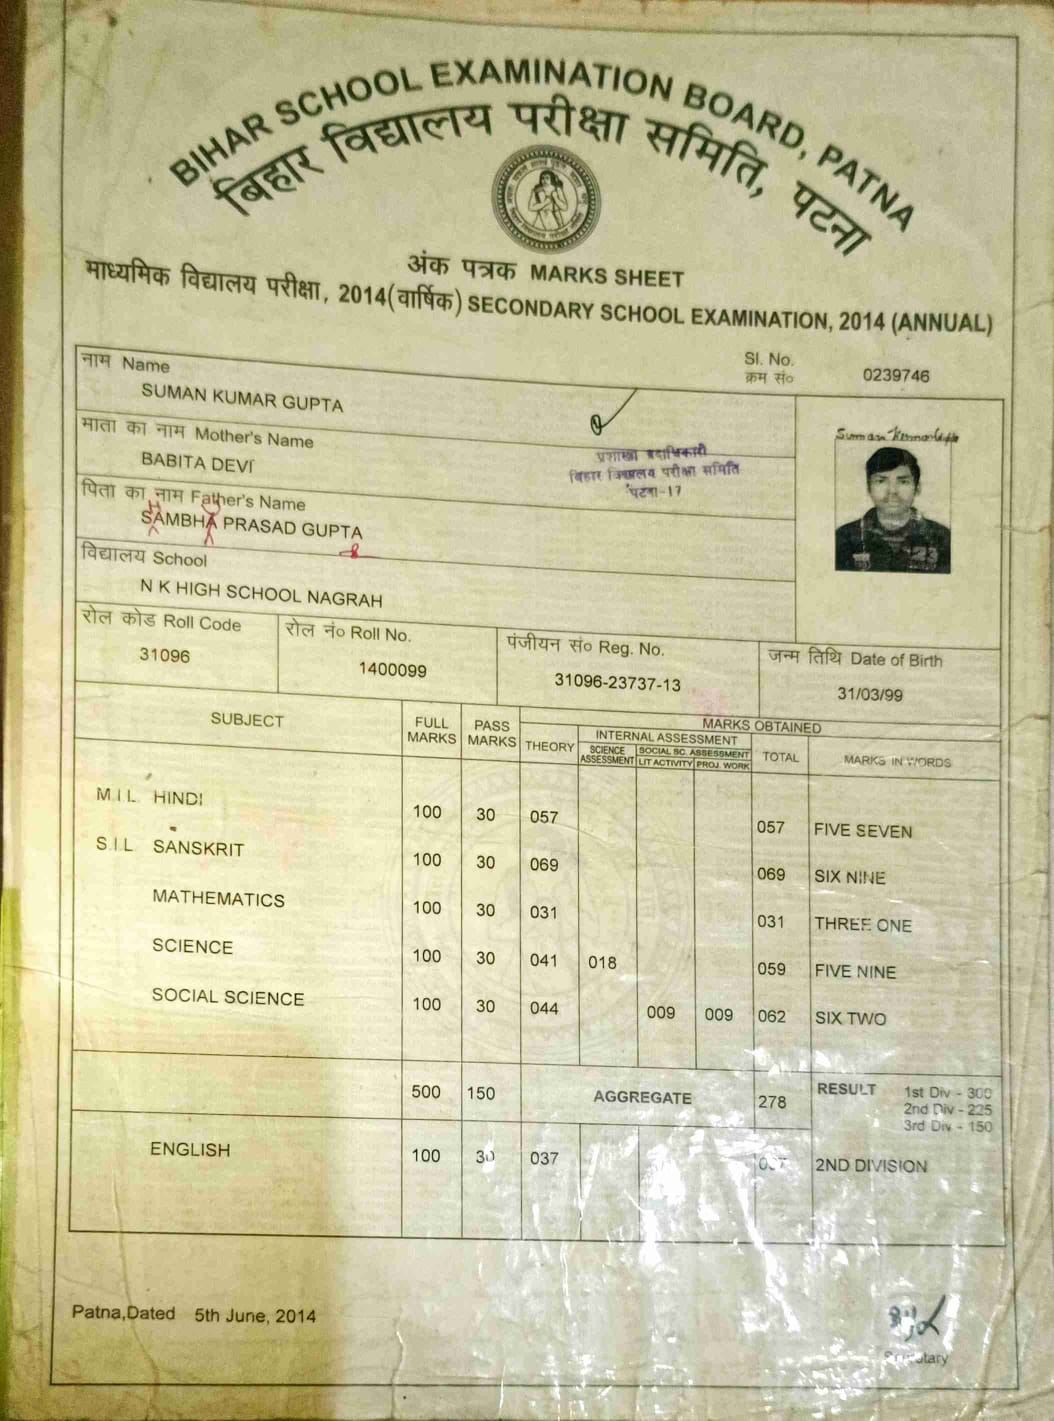 BIHAR SCHOOL EXAMINATION BOARD, PATNA
बिहार विद्यालय परीक्षा समिति, पटना
अंक पत्रक MARKS SHEET
माध्यमिक विद्यालय परीक्षा, 2014(वार्षिक) SECONDARY SCHOOL EXAMINATION, 2014 (ANNUAL)
Sl. No.
क्रम सं० 0239746
नाम Name
SUMAN KUMAR GUPTA
माता का नाम Mother's Name
BABITA DEVI
प्रशाखा पदाधिकारी
बिहार विद्यालय परीक्षा समिति
पटना-17
पिता का नाम Father's Name
SAMBHA PRASAD GUPTA
विद्यालय School
N K HIGH SCHOOL NAGRAH
रोल कोड Roll Code रोल नं० Roll No. पंजीयन सं० Reg. No. जन्म तिथि Date of Birth
31096 1400099 31096-23737-13 31/03/99
SUBJECT FULL MARKS PASS MARKS MARKS OBTAINED
THEORY INTERNAL ASSESSMENT TOTAL MARKS IN WORDS
SCIENCE ASSESSMENT SOCIAL SC. ASSESSMENT
LIT ACTIVITY PROJ. WORK
M I L HINDI 100 30 057 057 FIVE SEVEN
S.I.L SANSKRIT 100 30 069 069 SIX NINE
MATHEMATICS 100 30 031 031 THREE ONE
SCIENCE 100 30 041 018 059 FIVE NINE
SOCIAL SCIENCE 100 30 044 009 009 062 SIX TWO
500 150 AGGREGATE 278 RESULT 1st Div - 300
2nd Div - 225
3rd Div - 150
ENGLISH 100 30 037 037 2ND DIVISION
Patna,Dated 5th June, 2014
Secretary